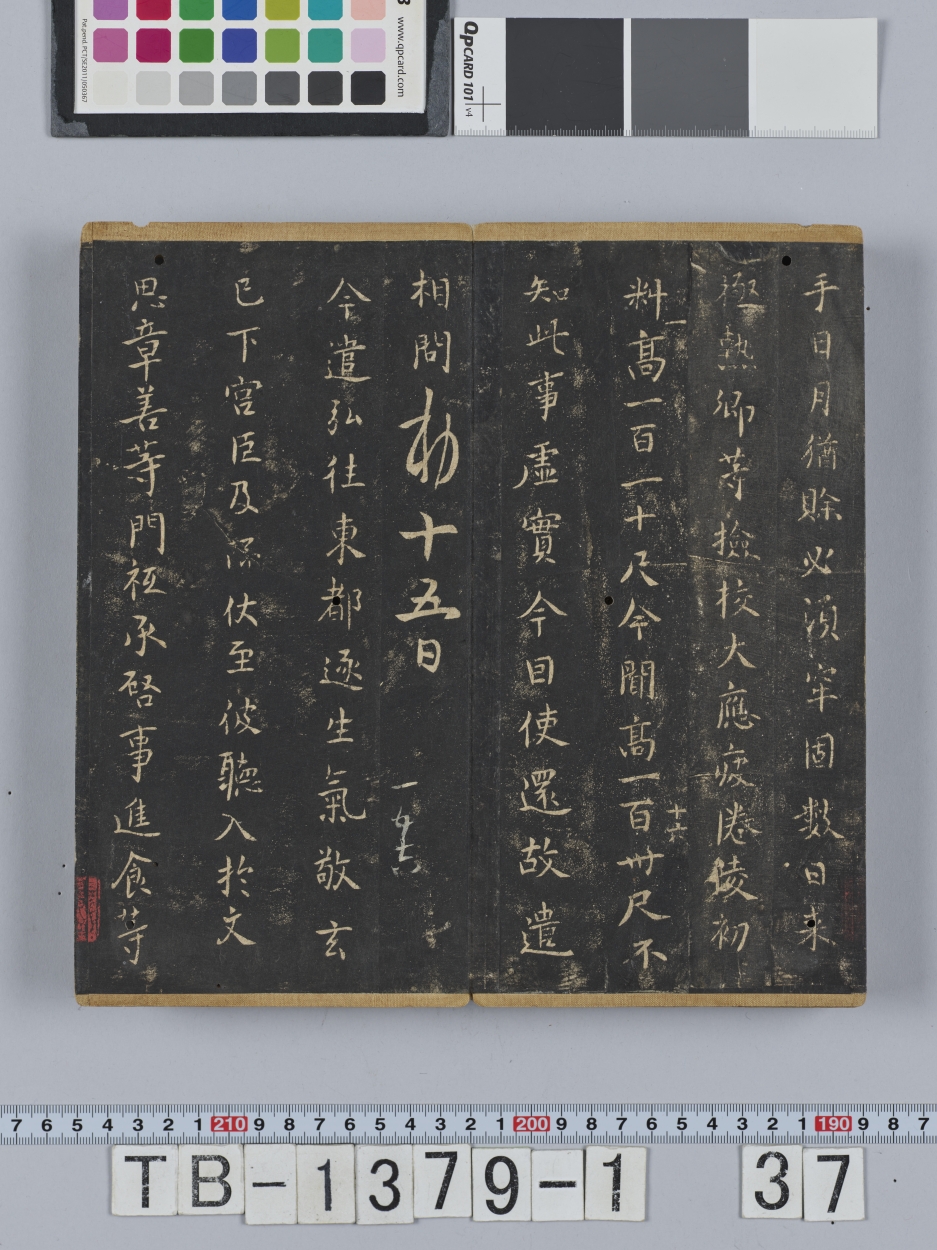 手日月猶賒必湏牢固数日来
極熱卿等撿挍大應疲倦陵初
料高一百一十尺今聞高一百卅尺不
知此事虛實今因使還故遣
相問勅十五日
今遣弘往東都逐生氣敬玄
已下宮臣及 仗至彼聽入於文
思章善等門祗承啓事進食等
一
十六
www.qpcard.com
Pat.pend. PCT/SE2011/050367
QPCARD 101 v4
7 6 5 4 3 2 1 210 9 8 7 6 5 4 3 2 1 200 9 8 7 6 5 4 3 2 1 190 9 8 7
TB-1379-1 37